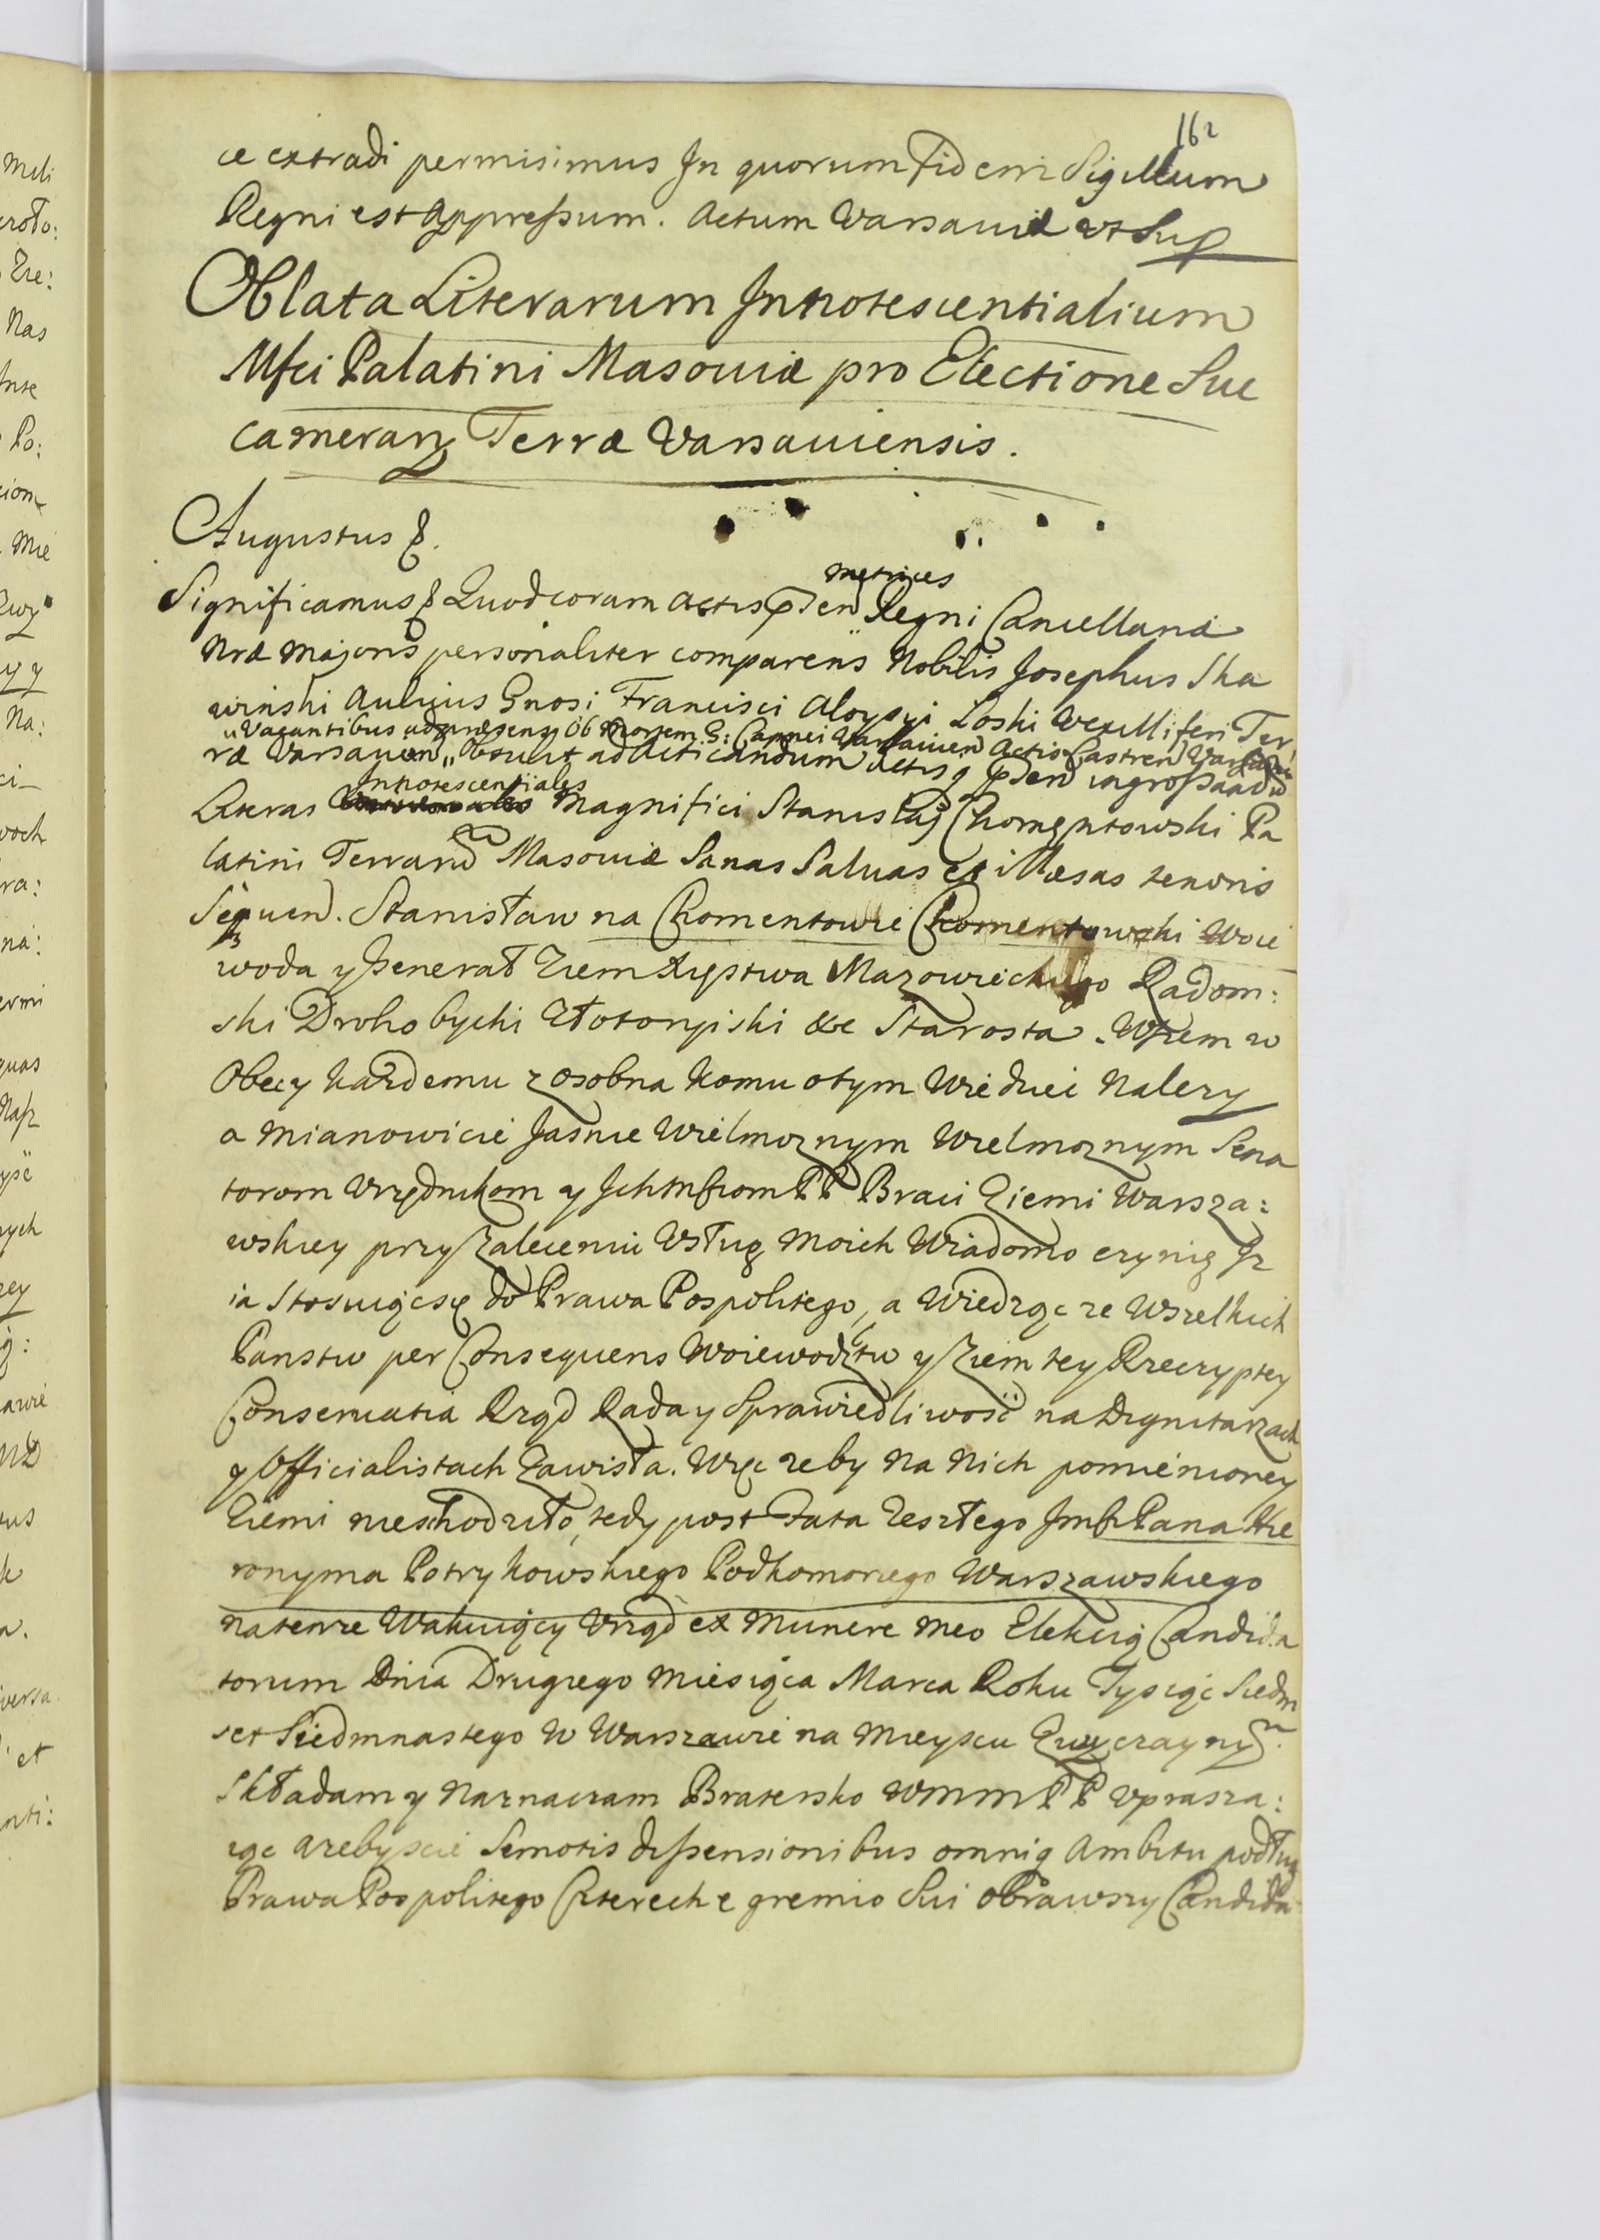 162
ce extradi permisimus In quorum fidem Sigillum
Regni est appressum. Actum Varsaviæ ut Sup
Oblata Literarum Innotescentialium
Mfci Palatini Masoviæ pro Electione Suc
camerarij Terræ Varsaviensis.
Augustus &.
metrices
Significamus & Quod coram Actis pnten Regni Cancellariæ
Nræ Majoris personaliter comparens Nobilis Josephus Ska
winski Aulicus Gnosi Francisci Aloysij Loski Vexilliferi Ter
Vacantibus ad præsens ob Mortem G: Capnei Varsavien Actis Castren Varsavien
ræ Varsavien obtulit ad Acticandum Actisq pnten ingrossandu
Innotescentiales
Literas Magnifici Stanislaj Chomentowski Pa
latini Terraru Masoviæ Sanas Salvas et illæsas tenoris
Sequen. Stanisław na Chomentowie Chomentowski Woie
woda y Generał Ziem Xięstwa Mazowieckiego Radom:
ski Drohobycki Złotoryiski &c Starosta. Wszem w
Obecy kazdemu z osobna komu o tym wiedziec nalezy
a mianowicie Jasnie Wielmoznym Wielmoznym Sena
torom Vrzędnikom y Ichmsciom PP Braci Ziemi Warsza:
wskiey przy Zaleceniu Vsług moich Wiadomo czynię Iz
ia Stosuiąc się do Prawa Pospolitego, a Wiedząc ze Wszelkich
Panstw per Consequens Woiewodztw y Ziem tey Rzeczyptey
Conservatia Rząd Rada y Sprawiedliwosć na Dygnitarzach
y Officialistach Zawisła. Więc zeby na nich pomienioney
Ziemi nieschodziło, tedy post Fata Zeszłego Jmsci Pana Hie
ronyma Potrykowskiego Podkomorzego Warszawskiego
na tenze Wakuiący Vrząd ex Munere meo Elekcią Candida
torum Dnia Drugiego Miesiąca Marca Roku Tysiąc Siedm
set Siedmnastego w Warszawie na Mieyscu Zwyczaynym
Składam y Naznaczam Bratersko WMM PP Vprasza:
iąc azebyscie Semotis dissensionibus omniq Ambitu podług
Prawa Pospolitego Czterech e gremio Sui obrawszy Candida